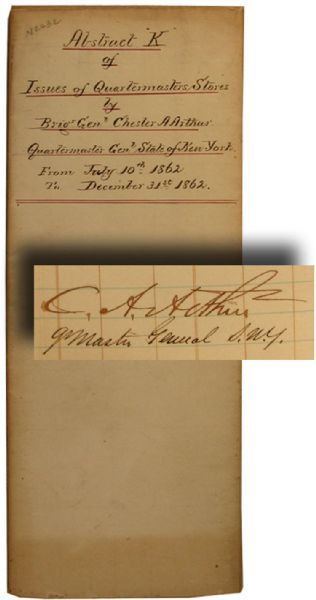 Abstract "K"
of
Issues of Quartermasters Stores
by
Brigr Genl Chester A Arthur
Quartermaster Genl State of New York
From July 10th 1862
To December 31st 1862.
C. A. Arthur
Qr Master General S.N.Y.